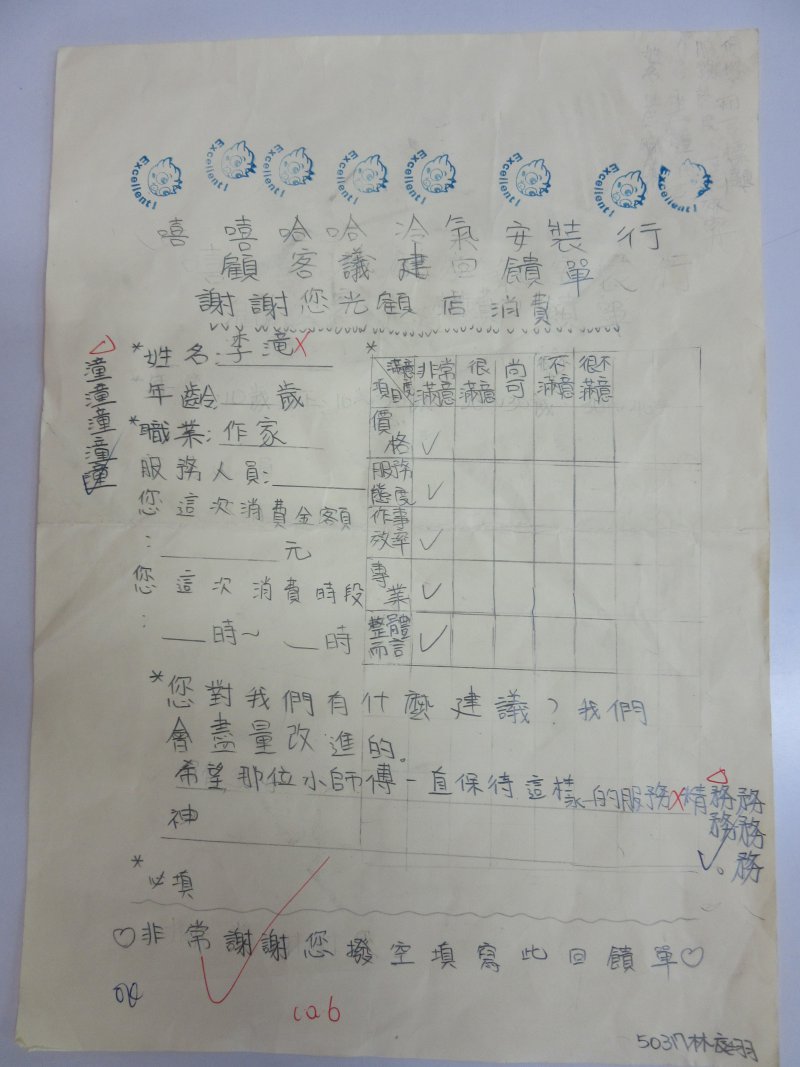 Excellent! Excellent! Excellent! Excellent! Excellent! Excellent! Excellent! Excellent!
嘻嘻哈哈冷氣安裝行
顧客議建回饋單
謝謝您光顧店消費
*姓名:李滝X
年齡 歲
*職業:作家
服務人員:
您這次消費金額
: 元
您這次消費時段
: 時~ 時
潼
潼
潼
潼
潼
*
滿意度 項目 非常滿意 很滿意 尚可 不滿意 很不滿意
價格 ✓
服務態度 ✓
作事效率 ✓
專業 ✓
整體而言 ✓
*您對我們有什麼建議?我們
會盡量改進的。
希望那位小師傅一直保待這樣的服務X精
神
。
務務
務務
務
*必填
♡非常謝謝您撥空填寫此回饋單♡
106
50317林庭羽